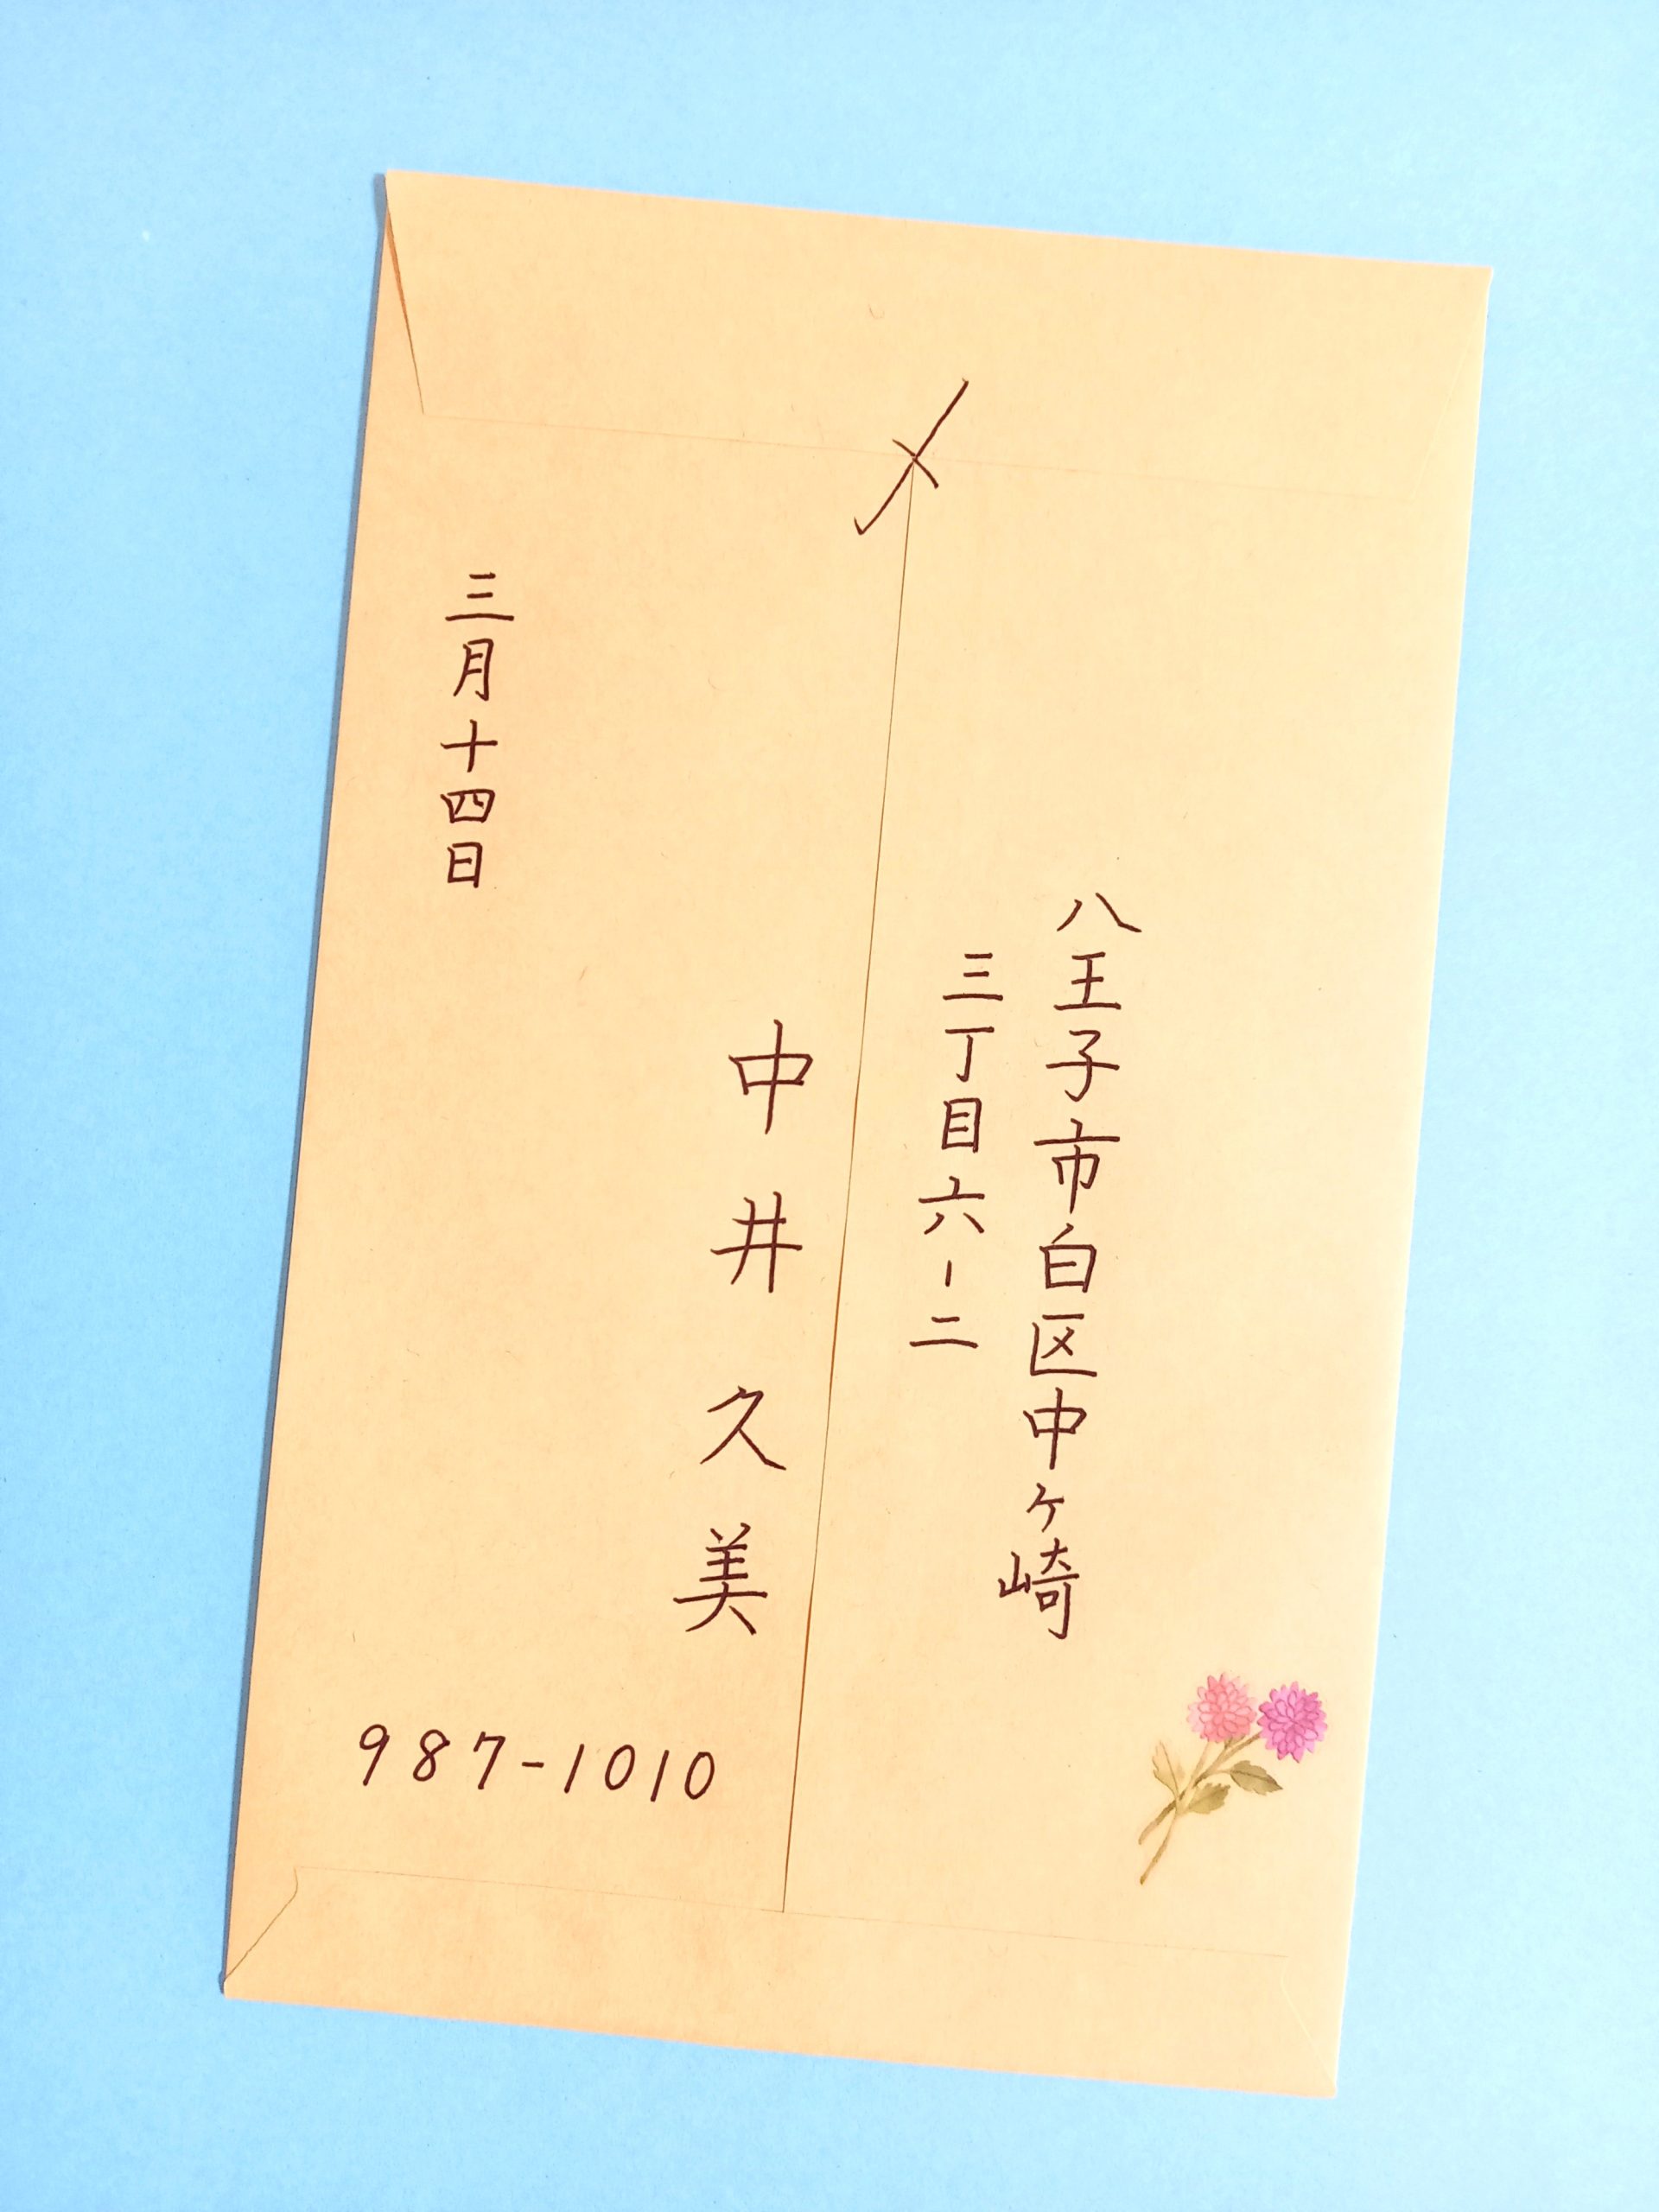 〆
八王子市白区中ヶ崎
三丁目六-二
中井久美
三月十四日
987-1010